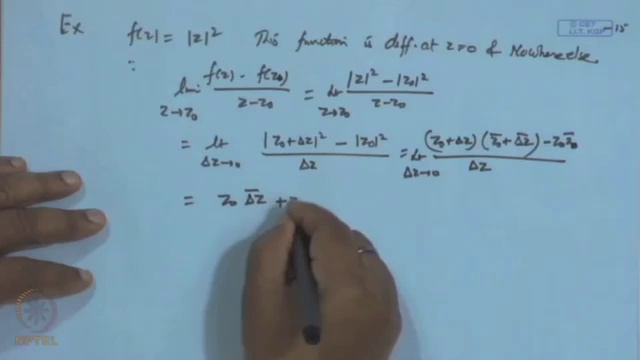 © CET
I.I.T. KGP
-15
Ex f(z) = |z|² This function is diff. at z=0 & Nowhere else.
∵ lim_{z→z₀} (f(z) - f(z₀))/(z-z₀) = lt_{z→z₀} (|z|² - |z₀|²)/(z-z₀)
= lt_{Δz→0} (|z₀+Δz|² - |z₀|²)/Δz = lt_{Δz→0} ((z₀+Δz)(z̄₀+Δ̄z̄) - z₀z̄₀)/Δz
= z₀ Δ̄z̄ +
NPTEL